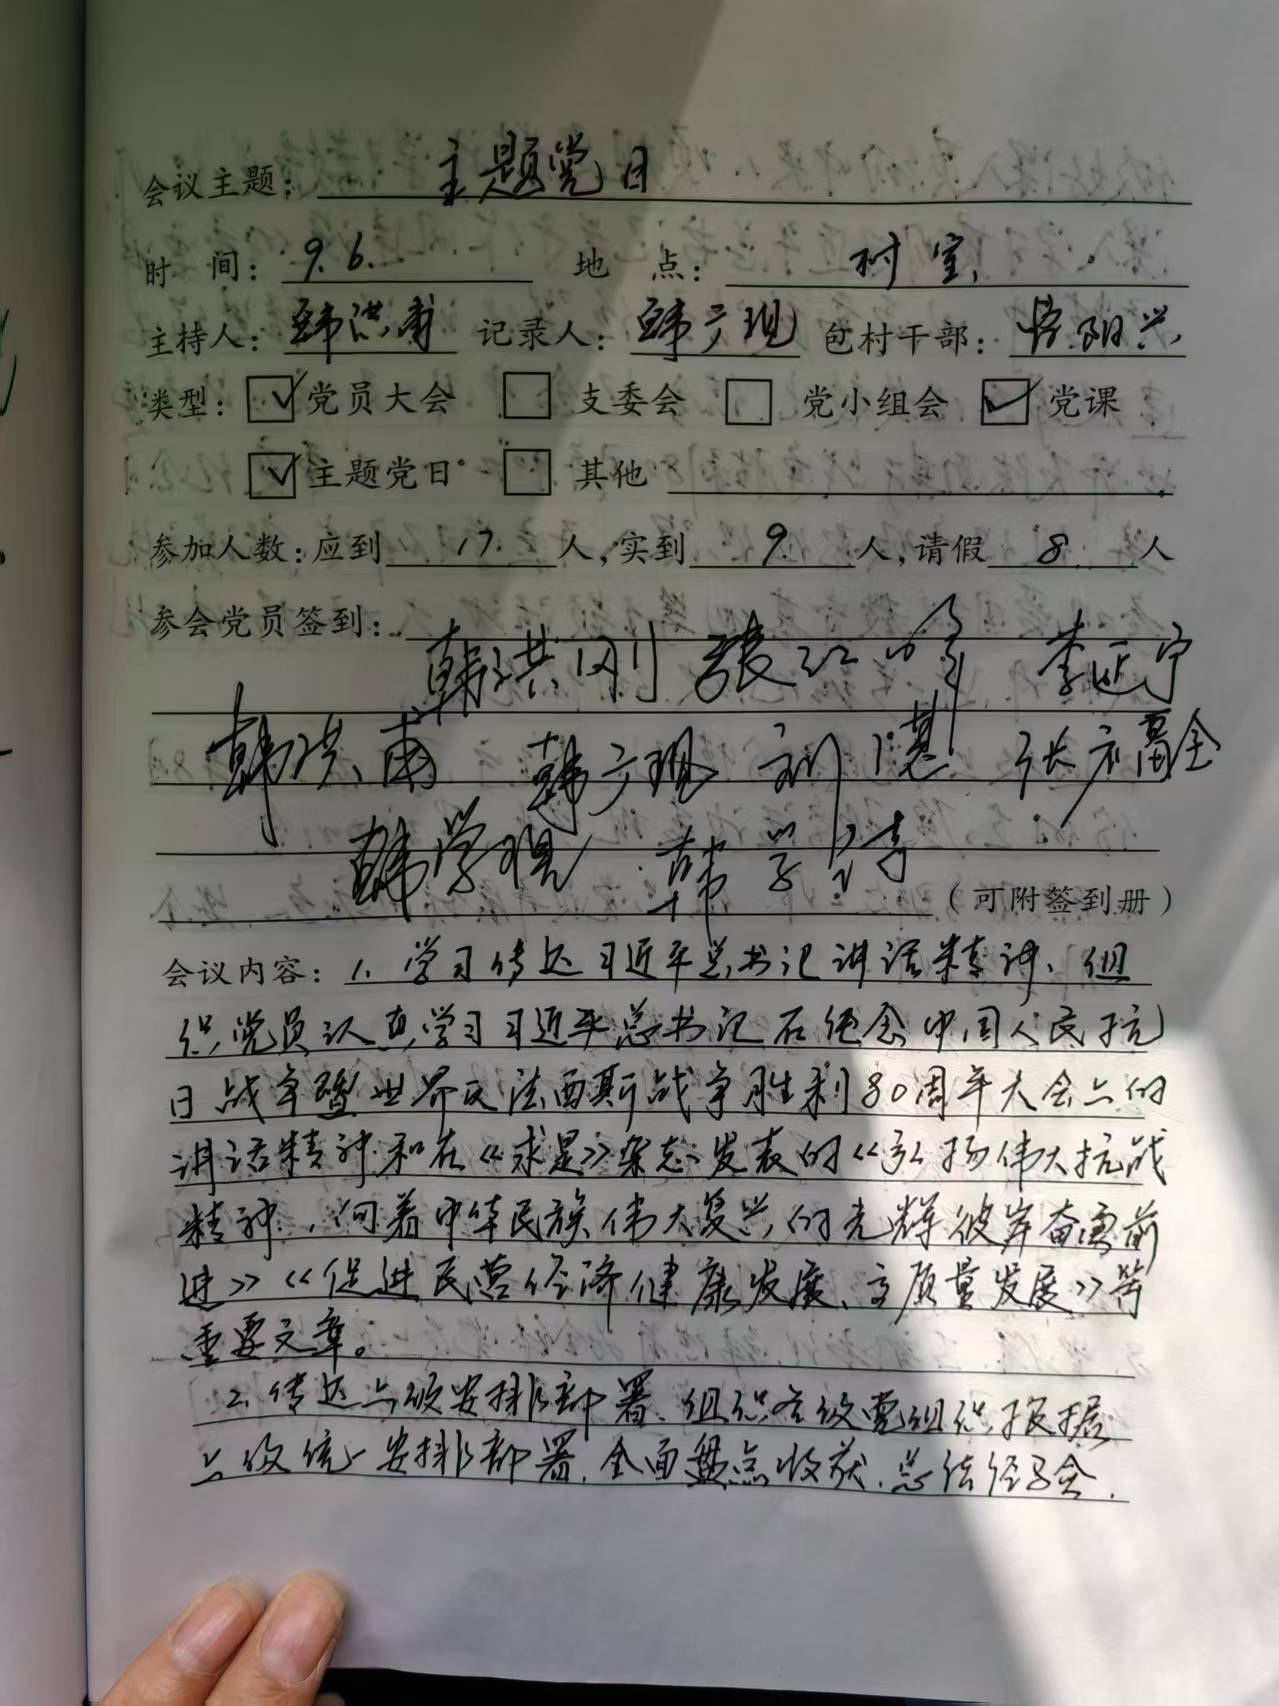 会议主题: 主题党日
时 间: 9.6. 地 点: 村室
主持人: 韩洪甫 记录人: 韩广现 包村干部: 阳兴
类型: ☑党员大会 □支委会 □党小组会 ☑党课
☑主题党日 □其他
参加人数:应到 17 人,实到 9 人,请假 8 人
参会党员签到:
韩洪刚 张江峰 李延宁
韩洪甫 韩广现 刘 张福全
韩学现 韩学诗
(可附签到册)
会议内容: 1. 学习传达习近平总书记讲话精神、组
织党员认真学习习近平总书记在纪念中国人民抗
日战争暨世界反法西斯战争胜利80周年大会上的
讲话精神和在《求是》杂志发表的《弘扬伟大抗战
精神,向着中华民族伟大复兴的光辉彼岸奋勇前
进》《促进民营经济健康发展、高质量发展》等
重要文章。
2. 传达上级安排部署、组织各级党组织根据
上级统一安排部署、全面盘点收获、总结经验